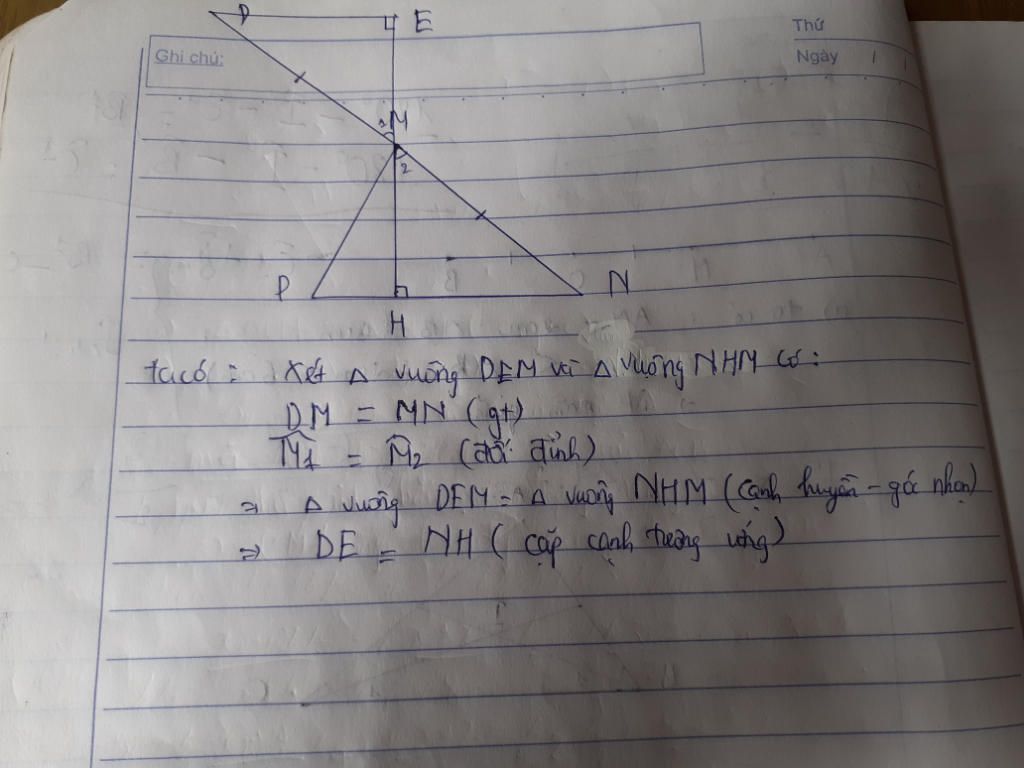 D
E
Thứ
Ghi chú:
Ngày / /
M
2
P
N
H
ta có : Xét Δ vuông DEM và Δ vuông NHM có:
DM = MN (gt)
M̂1 = M̂2 (đối đỉnh)
⇒ Δ vuông DEM = Δ vuông NHM (cạnh huyền - góc nhọn)
⇒ DE = NH ( cặp cạnh tương ứng)